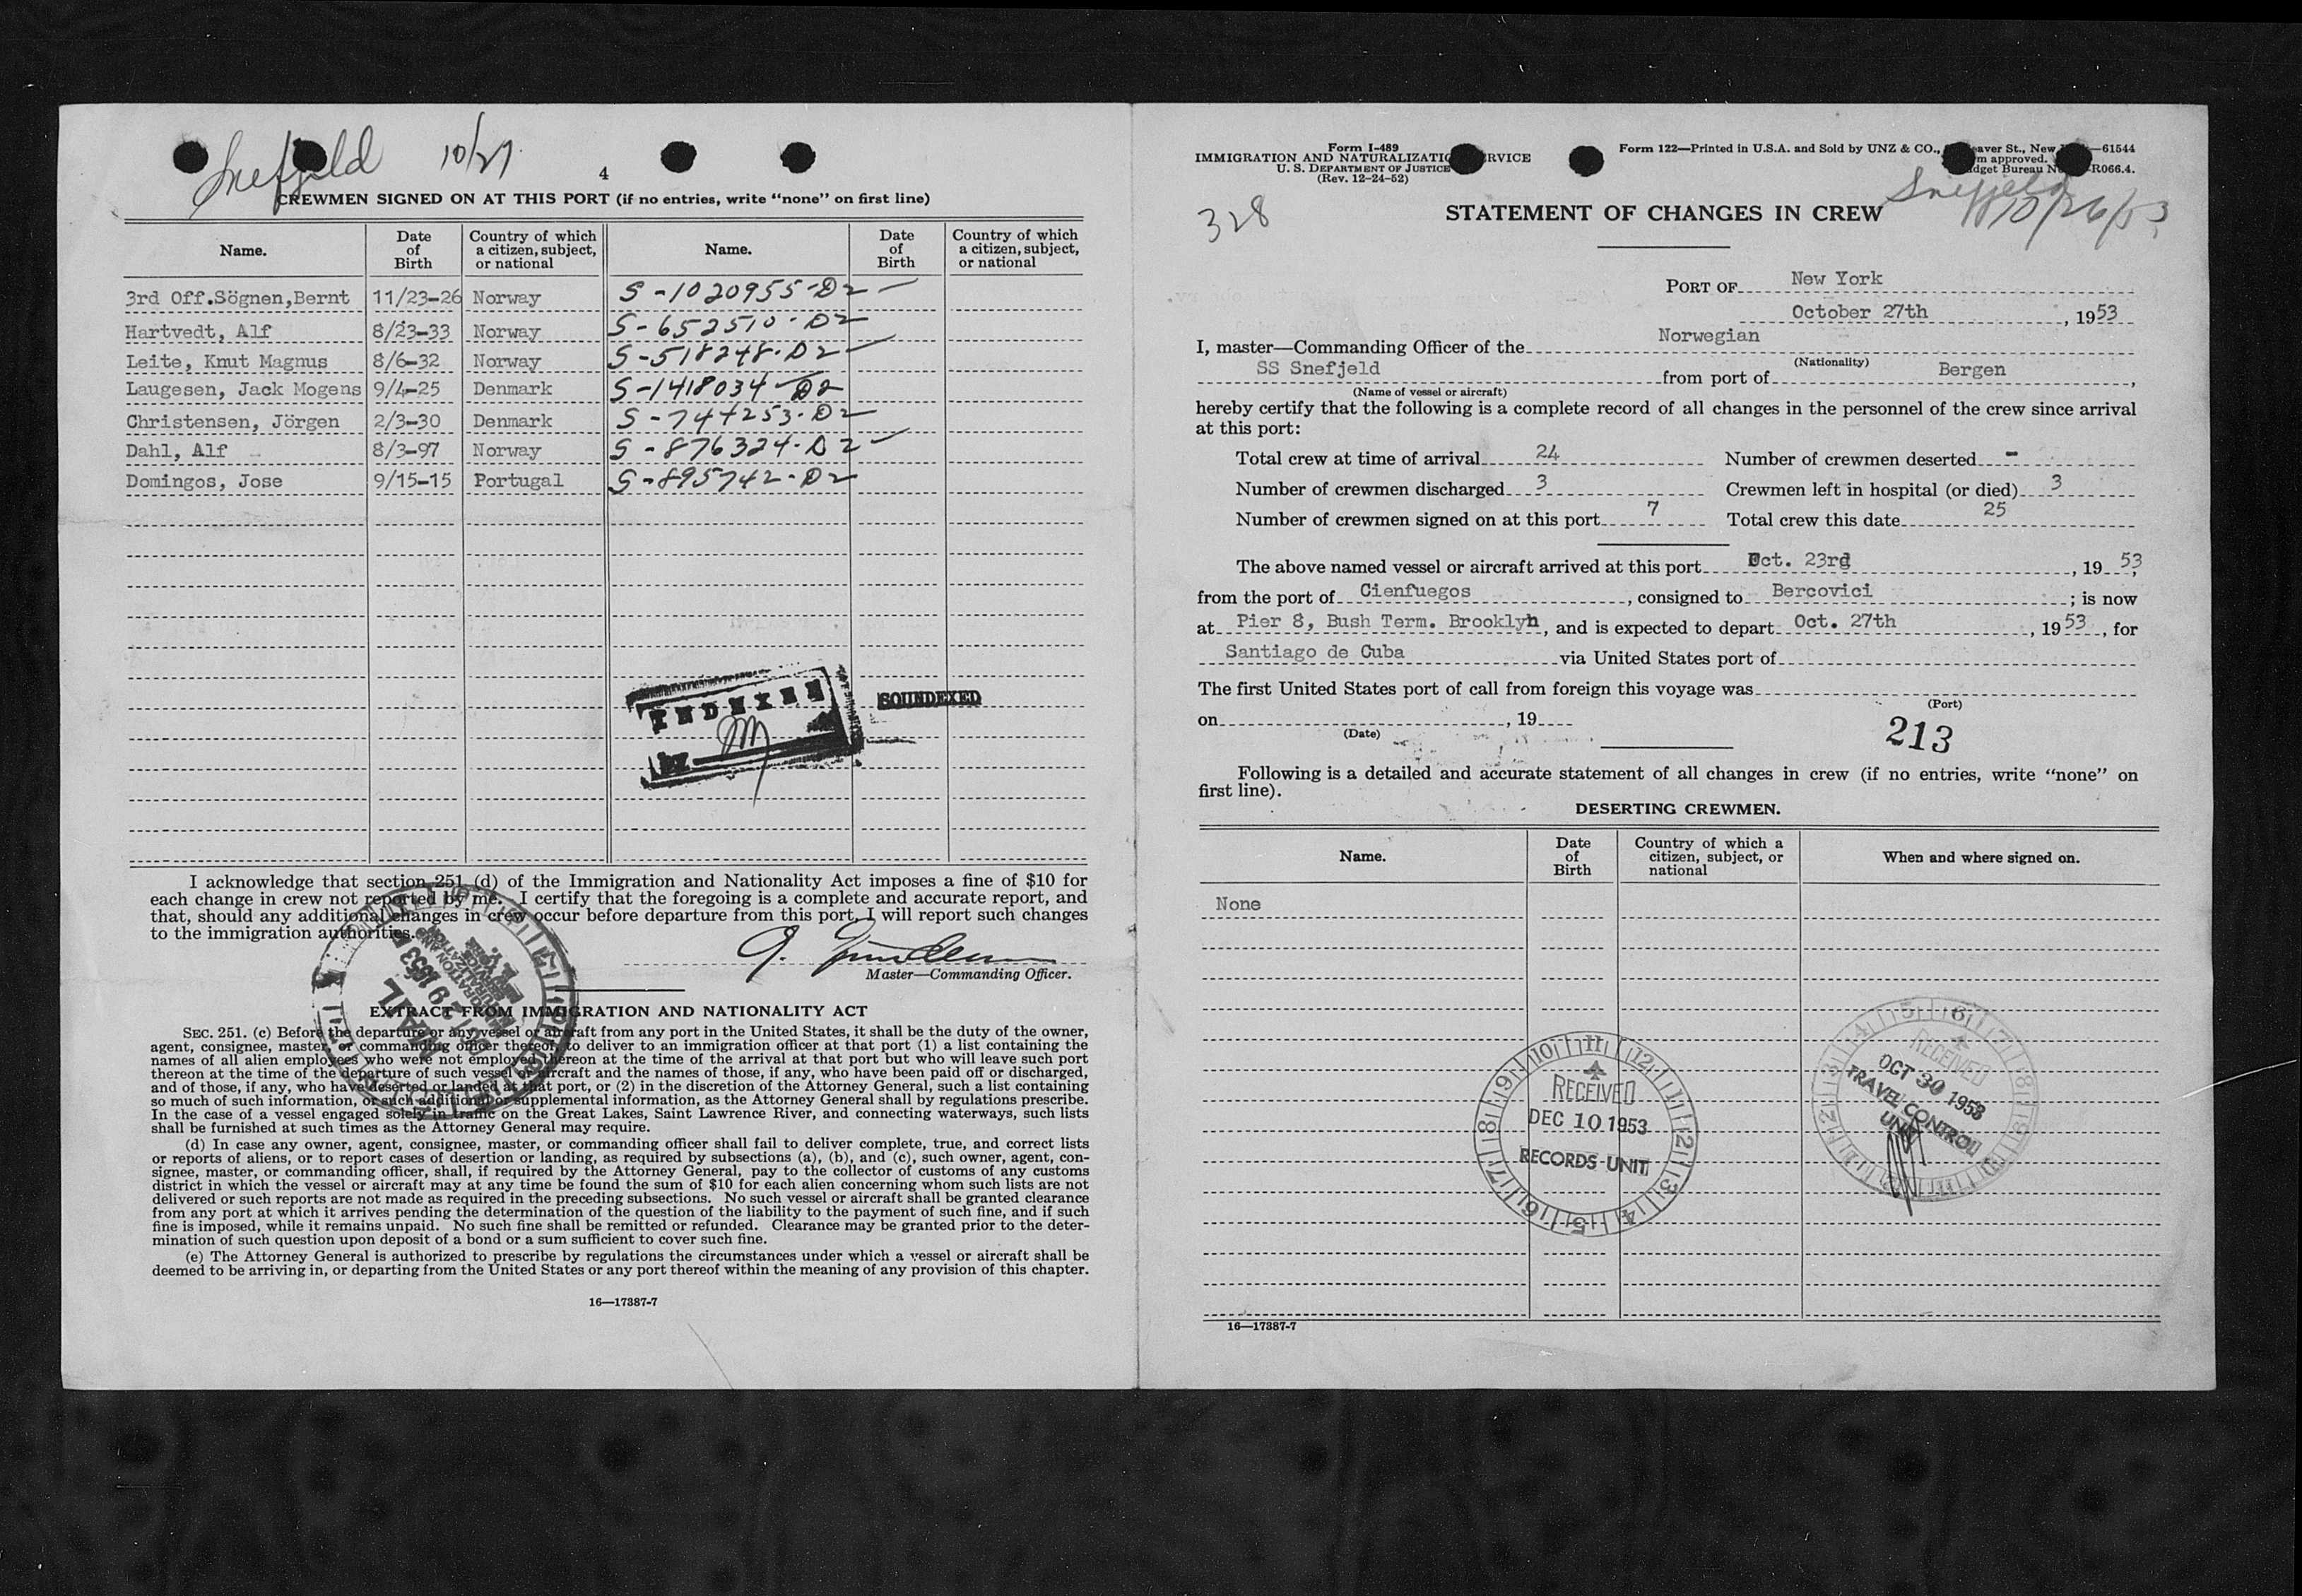 Snefjeld 10/27
4
CREWMEN SIGNED ON AT THIS PORT (if no entries, write “none” on first line)
Name. Date of Birth Country of which a citizen, subject, or national Name. Date of Birth Country of which a citizen, subject, or national
3rd Off.Sögnen,Bernt 11/23-26 Norway S-1020955-D2-
Hartvedt, Alf 8/23-33 Norway S-652510-D2
Leite, Knut Magnus 8/6-32 Norway S-518248-D2-
Laugesen, Jack Mogens 9/4-25 Denmark S-1418034-D2
Christensen, Jörgen 2/3-30 Denmark S-747253-D2
Dahl, Alf 8/3-97 Norway S-876324-D2-
Domingos, Jose 9/15-15 Portugal S-895742-D2
INDEXED
by
SOUNDEXED
I acknowledge that section 251 (d) of the Immigration and Nationality Act imposes a fine of $10 for
each change in crew not reported by me. I certify that the foregoing is a complete and accurate report, and
that, should any additional changes in crew occur before departure from this port, I will report such changes
to the immigration authorities.
Master—Commanding Officer.
EXTRACT FROM IMMIGRATION AND NATIONALITY ACT
SEC. 251. (c) Before the departure or any vessel or aircraft from any port in the United States, it shall be the duty of the owner,
agent, consignee, master, or commanding officer thereof, to deliver to an immigration officer at that port (1) a list containing the
names of all alien employees who were not employed thereon at the time of the arrival at that port but who will leave such port
thereon at the time of the departure of such vessel or aircraft and the names of those, if any, who have been paid off or discharged,
and of those, if any, who have deserted or landed at that port, or (2) in the discretion of the Attorney General, such a list containing
so much of such information, or such additional or supplemental information, as the Attorney General shall by regulations prescribe.
In the case of a vessel engaged solely in traffic on the Great Lakes, Saint Lawrence River, and connecting waterways, such lists
shall be furnished at such times as the Attorney General may require.
(d) In case any owner, agent, consignee, master, or commanding officer shall fail to deliver complete, true, and correct lists
or reports of aliens, or to report cases of desertion or landing, as required by subsections (a), (b), and (c), such owner, agent, con-
signee, master, or commanding officer, shall, if required by the Attorney General, pay to the collector of customs of any customs
district in which the vessel or aircraft may at any time be found the sum of $10 for each alien concerning whom such lists are not
delivered or such reports are not made as required in the preceding subsections. No such vessel or aircraft shall be granted clearance
from any port at which it arrives pending the determination of the question of the liability to the payment of such fine, and if such
fine is imposed, while it remains unpaid. No such fine shall be remitted or refunded. Clearance may be granted prior to the deter-
mination of such question upon deposit of a bond or a sum sufficient to cover such fine.
(e) The Attorney General is authorized to prescribe by regulations the circumstances under which a vessel or aircraft shall be
deemed to be arriving in, or departing from the United States or any port thereof within the meaning of any provision of this chapter.
16—17387-7
Form I-489
IMMIGRATION AND NATURALIZATION SERVICE
U. S. DEPARTMENT OF JUSTICE
(Rev. 12-24-52)
Form 122—Printed in U.S.A. and Sold by UNZ & CO., Beaver St., New —61544
approved.
Budget Bureau -R066.4.
Snefjeld
10/26/53
328
STATEMENT OF CHANGES IN CREW
PORT OF New York
October 27th, 1953
I, master—Commanding Officer of the Norwegian
(Nationality)
SS Snefjeld from port of Bergen,
(Name of vessel or aircraft)
hereby certify that the following is a complete record of all changes in the personnel of the crew since arrival
at this port:
Total crew at time of arrival 24 Number of crewmen deserted -
Number of crewmen discharged 3 Crewmen left in hospital (or died) 3
Number of crewmen signed on at this port 7 Total crew this date 25
The above named vessel or aircraft arrived at this port Oct. 23rd, 19 53,
from the port of Cienfuegos, consigned to Bercovici; is now
at Pier 8, Bush Term. Brooklyn, and is expected to depart Oct. 27th, 19 53, for
Santiago de Cuba via United States port of
The first United States port of call from foreign this voyage was
(Port)
on , 19
(Date)
213
Following is a detailed and accurate statement of all changes in crew (if no entries, write “none” on
first line).
DESERTING CREWMEN.
Name. Date of Birth Country of which a citizen, subject, or national When and where signed on.
None
RECEIVED
DEC 10 1953
RECORDS UNIT
RECEIVED
OCT 30 1953
TRAVEL CONTROL
UNIT
16—17387-7